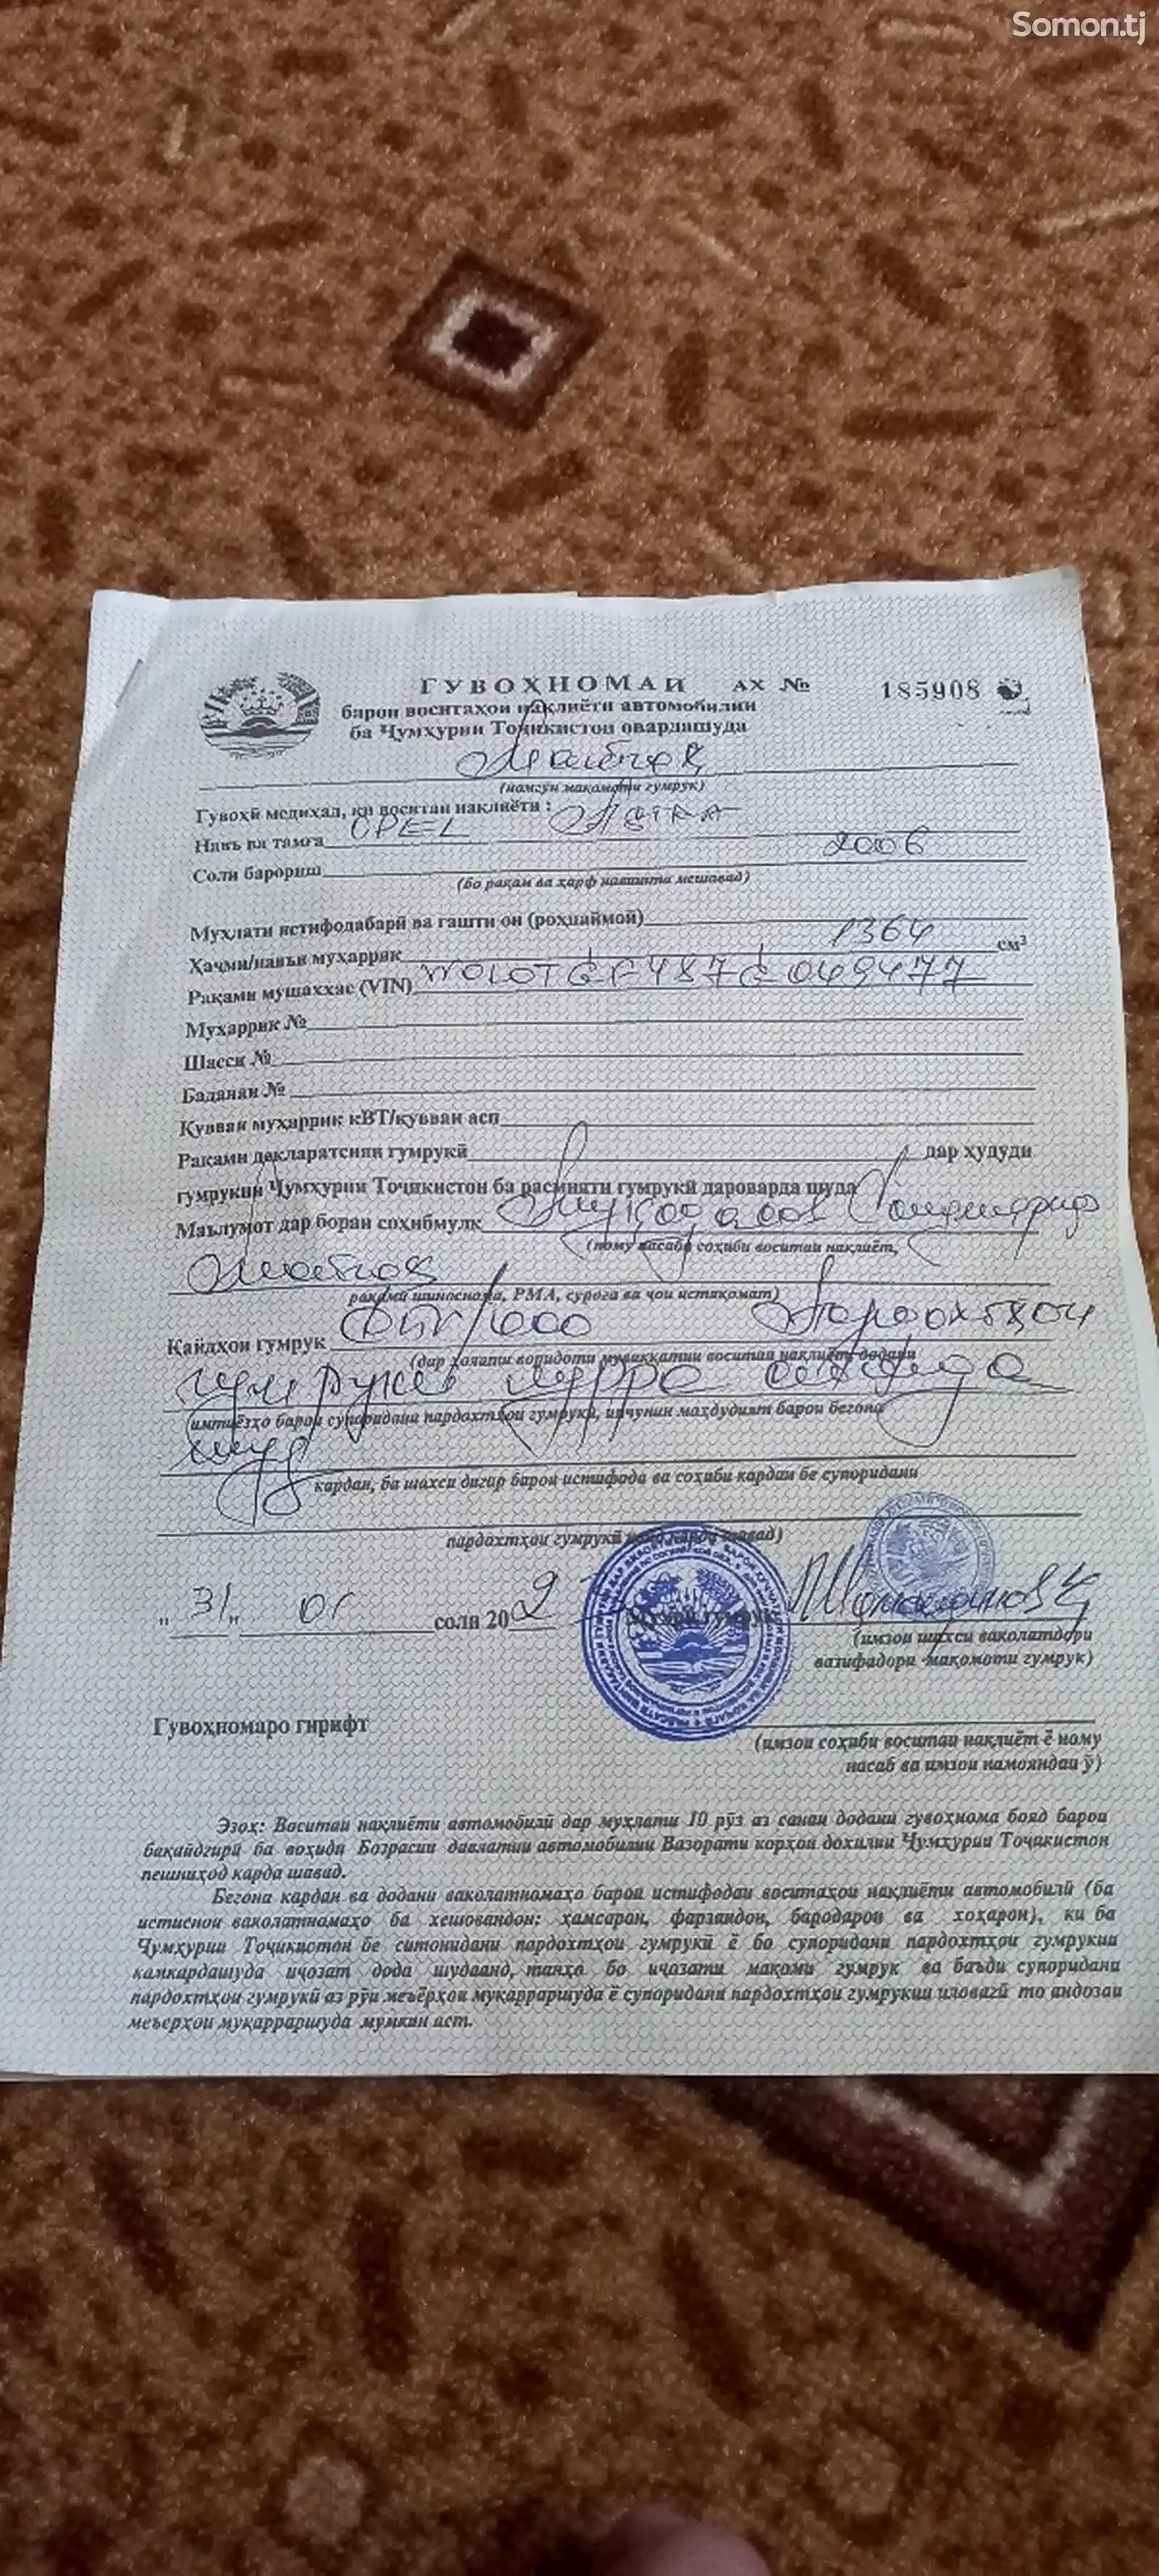 Somon.tj
ГУВОҲНОМАИ АХ № 185908
барои воситаҳои нақлиёти автомобилии
ба Ҷумҳурии Тоҷикистон овардашуда
(номгӯи мақомоти гумрук)
Гувоҳӣ медиҳад, ки воситаи нақлиёти :
Навъ ва тамға OPEL Astra
Соли барориш 2006
(бо рақам ва ҳарф навишта мешавад)
Муҳлати истифодабарӣ ва гашти он (роҳпаймоӣ)
Ҳаҷми/навъи муҳаррик 1364 см³
Рақами мушаххас (VIN)
Муҳаррик №
Шасси №
Баданаи №
Қувваи муҳаррик кВТ/қувваи асп
Рақами декларатсияи гумрукӣ дар ҳудуди
гумрукии Ҷумҳурии Тоҷикистон ба расмияти гумрукӣ дароварда шуда
Маълумот дар бораи соҳибмулк
(ному насаби соҳиби воситаи нақлиёт,
рақами шиноснома, РМА, суроға ва ҷои истиқомат)
Қайдҳои гумрук Пардохтҳои
(дар ҳолати воридоти муваққатии воситаи нақлиёт додани
гумрукӣ пурра
имтиёзҳо барои супоридани пардохтҳои гумрукӣ, инчунин маҳдудият барои бегона
шуд
кардан, ба шахси дигар барои истифода ва соҳиби кардан бе супоридани
пардохтҳои гумрукӣ қайд карда шавад)
" 31 " 01 соли 20 Мӯҳри гумрук
(имзои шахси ваколатдори
вазифадори мақомоти гумрук)
Гувоҳномаро гирифт
(имзои соҳиби воситаи нақлиёт ё ному
насаб ва имзои намояндаи ӯ)
Эзоҳ: Воситаи нақлиёти автомобилӣ дар муҳлати 10 рӯз аз санаи додани гувоҳнома бояд барои
бақайдгирӣ ба воҳиди Бозрасии давлатии автомобилии Вазорати корҳои дохилии Ҷумҳурии Тоҷикистон
пешниҳод карда шавад.
Бегона кардан ва додани ваколатномаҳо барои истифодаи воситаҳои нақлиёти автомобилӣ (ба
истиснои ваколатномаҳо ба хешовандон: ҳамсарон, фарзандон, бародарон ва хоҳарон), ки ба
Ҷумҳурии Тоҷикистон бе ситонидани пардохтҳои гумрукӣ ё бо супоридани пардохтҳои гумрукии
камкардашуда иҷозат дода шудаанд, танҳо бо иҷозати мақоми гумрук ва баъди супоридани
пардохтҳои гумрукӣ аз рӯи меъёрҳои муқарраршуда ё супоридани пардохтҳои гумрукии иловагӣ то андозаи
меъёрҳои муқарраршуда мумкин аст.